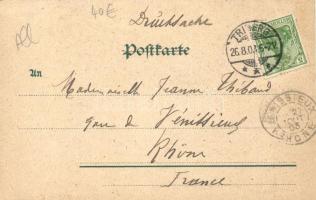 All
40€
Drucksache
Postkarte
TRIBERG
26.8.03. 6-7N
An
Mademoiselle Jeanne Thibaud
gare de Vénissieux
Rhône
France